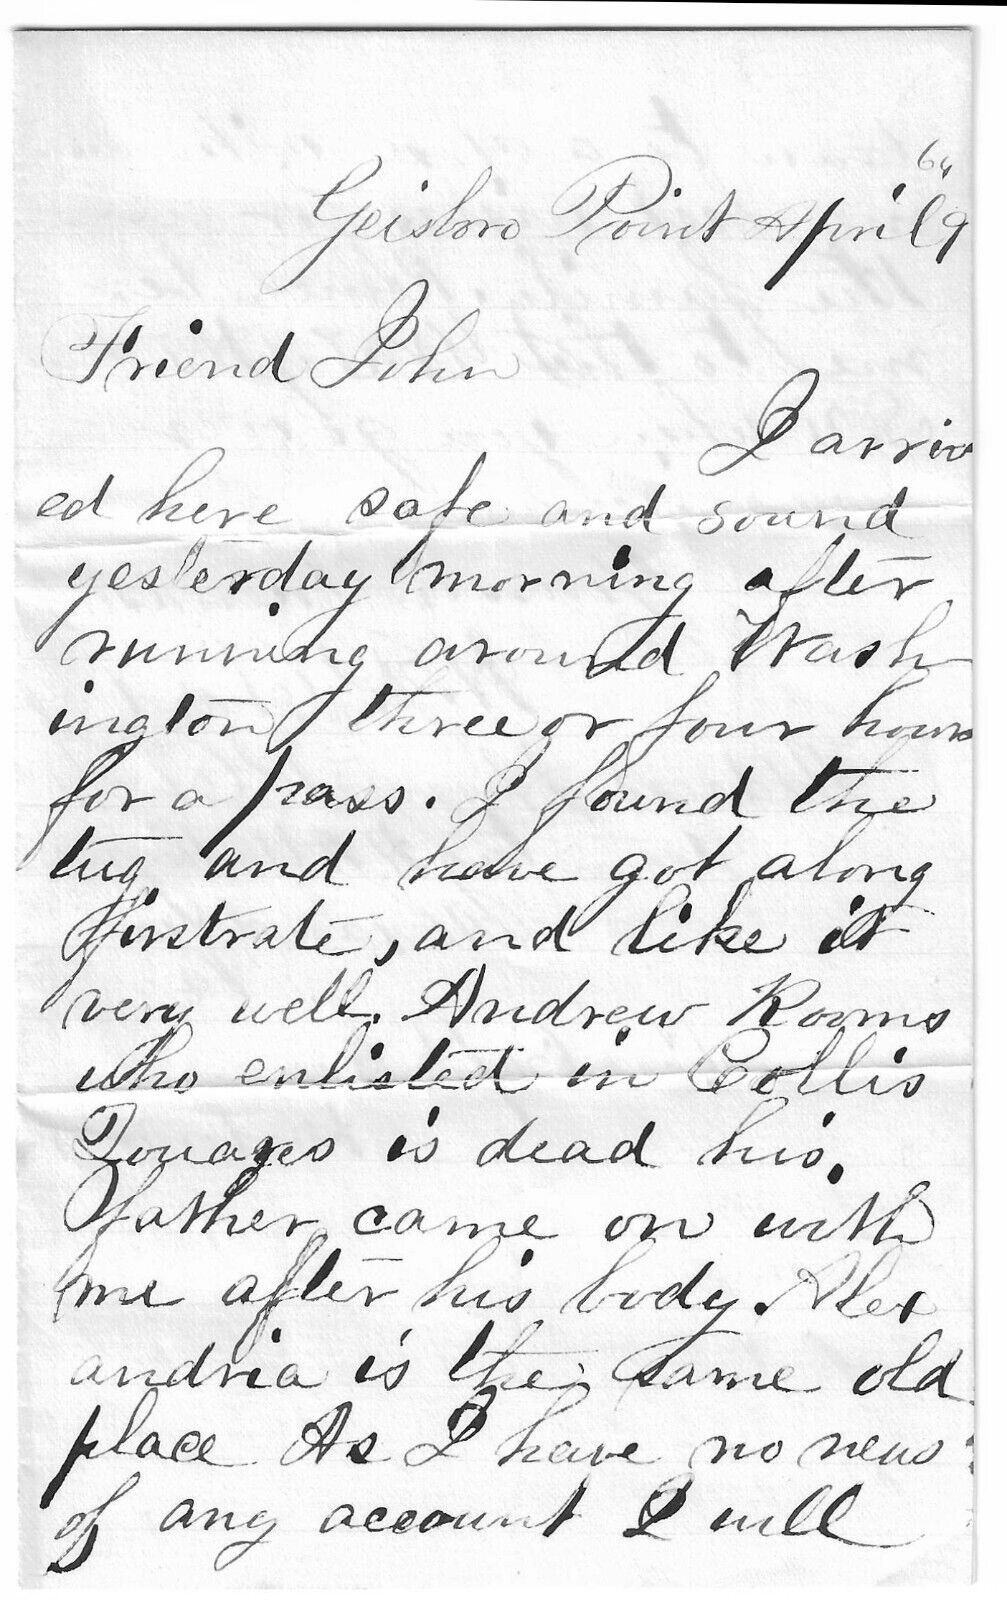 64
Geisboro Point April 9
Friend John
I arriv
ed here safe and sound
yesterday morning after
running around Wash
ington three or four hours
for a pass. I found the
tug and have got along
firstrate, and like it
very well. Andrew Rooms
who enlisted in Collis
Zouaves is dead his.
father came on with
me after his body. Alex
andria is the same old
place As I have no news
of any account I will